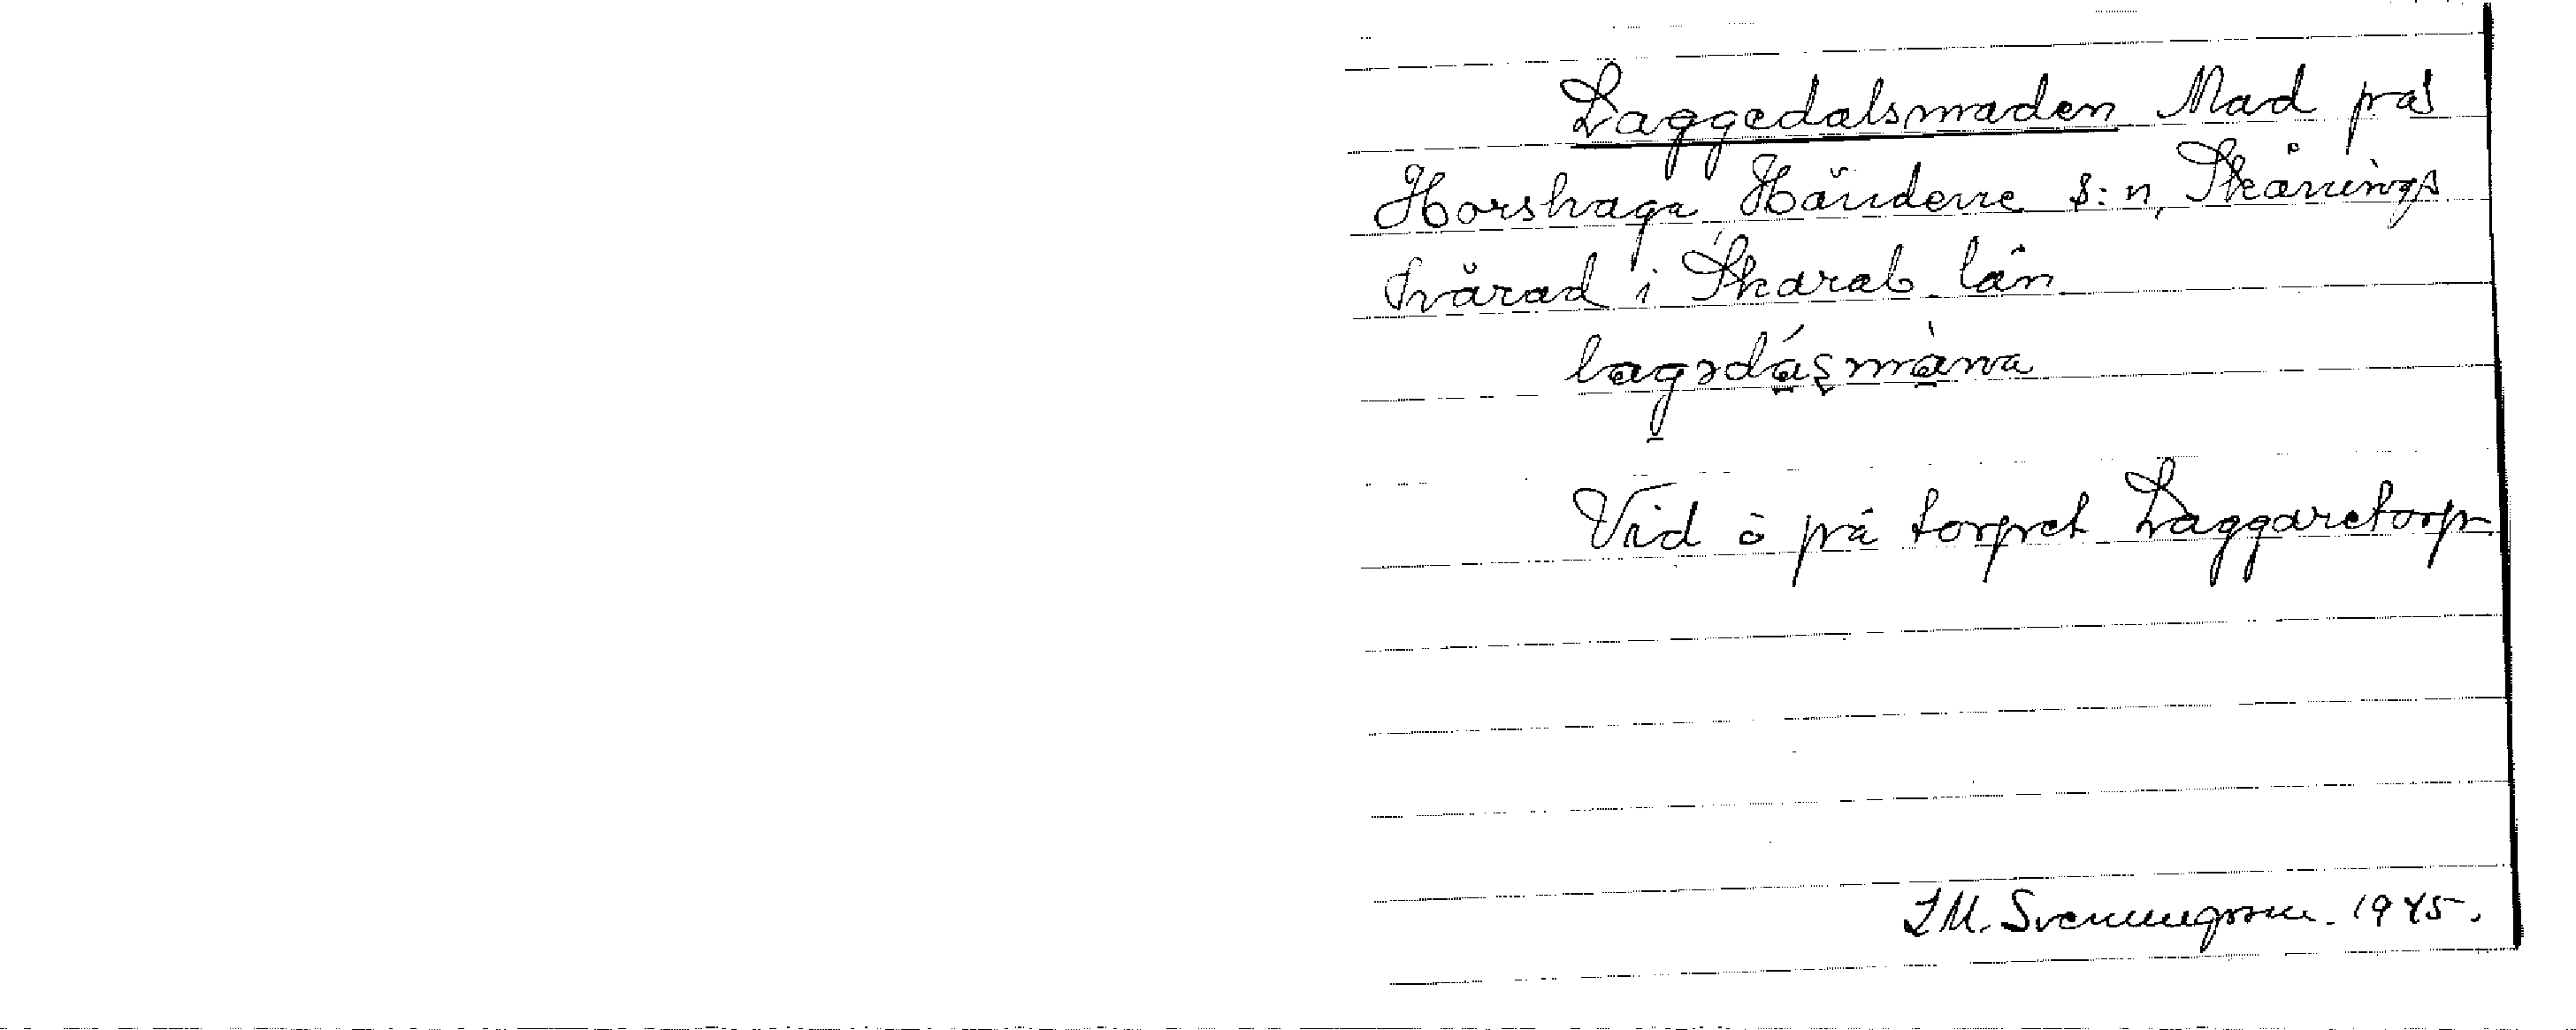 Laggedalsmaden Mad på
Horshaga, Händene s:n, Skånings
härad i Skarab. län
lagədásmàwa
Vid å på torpet Laggaretorp
I M. Svenungsson. 1945.